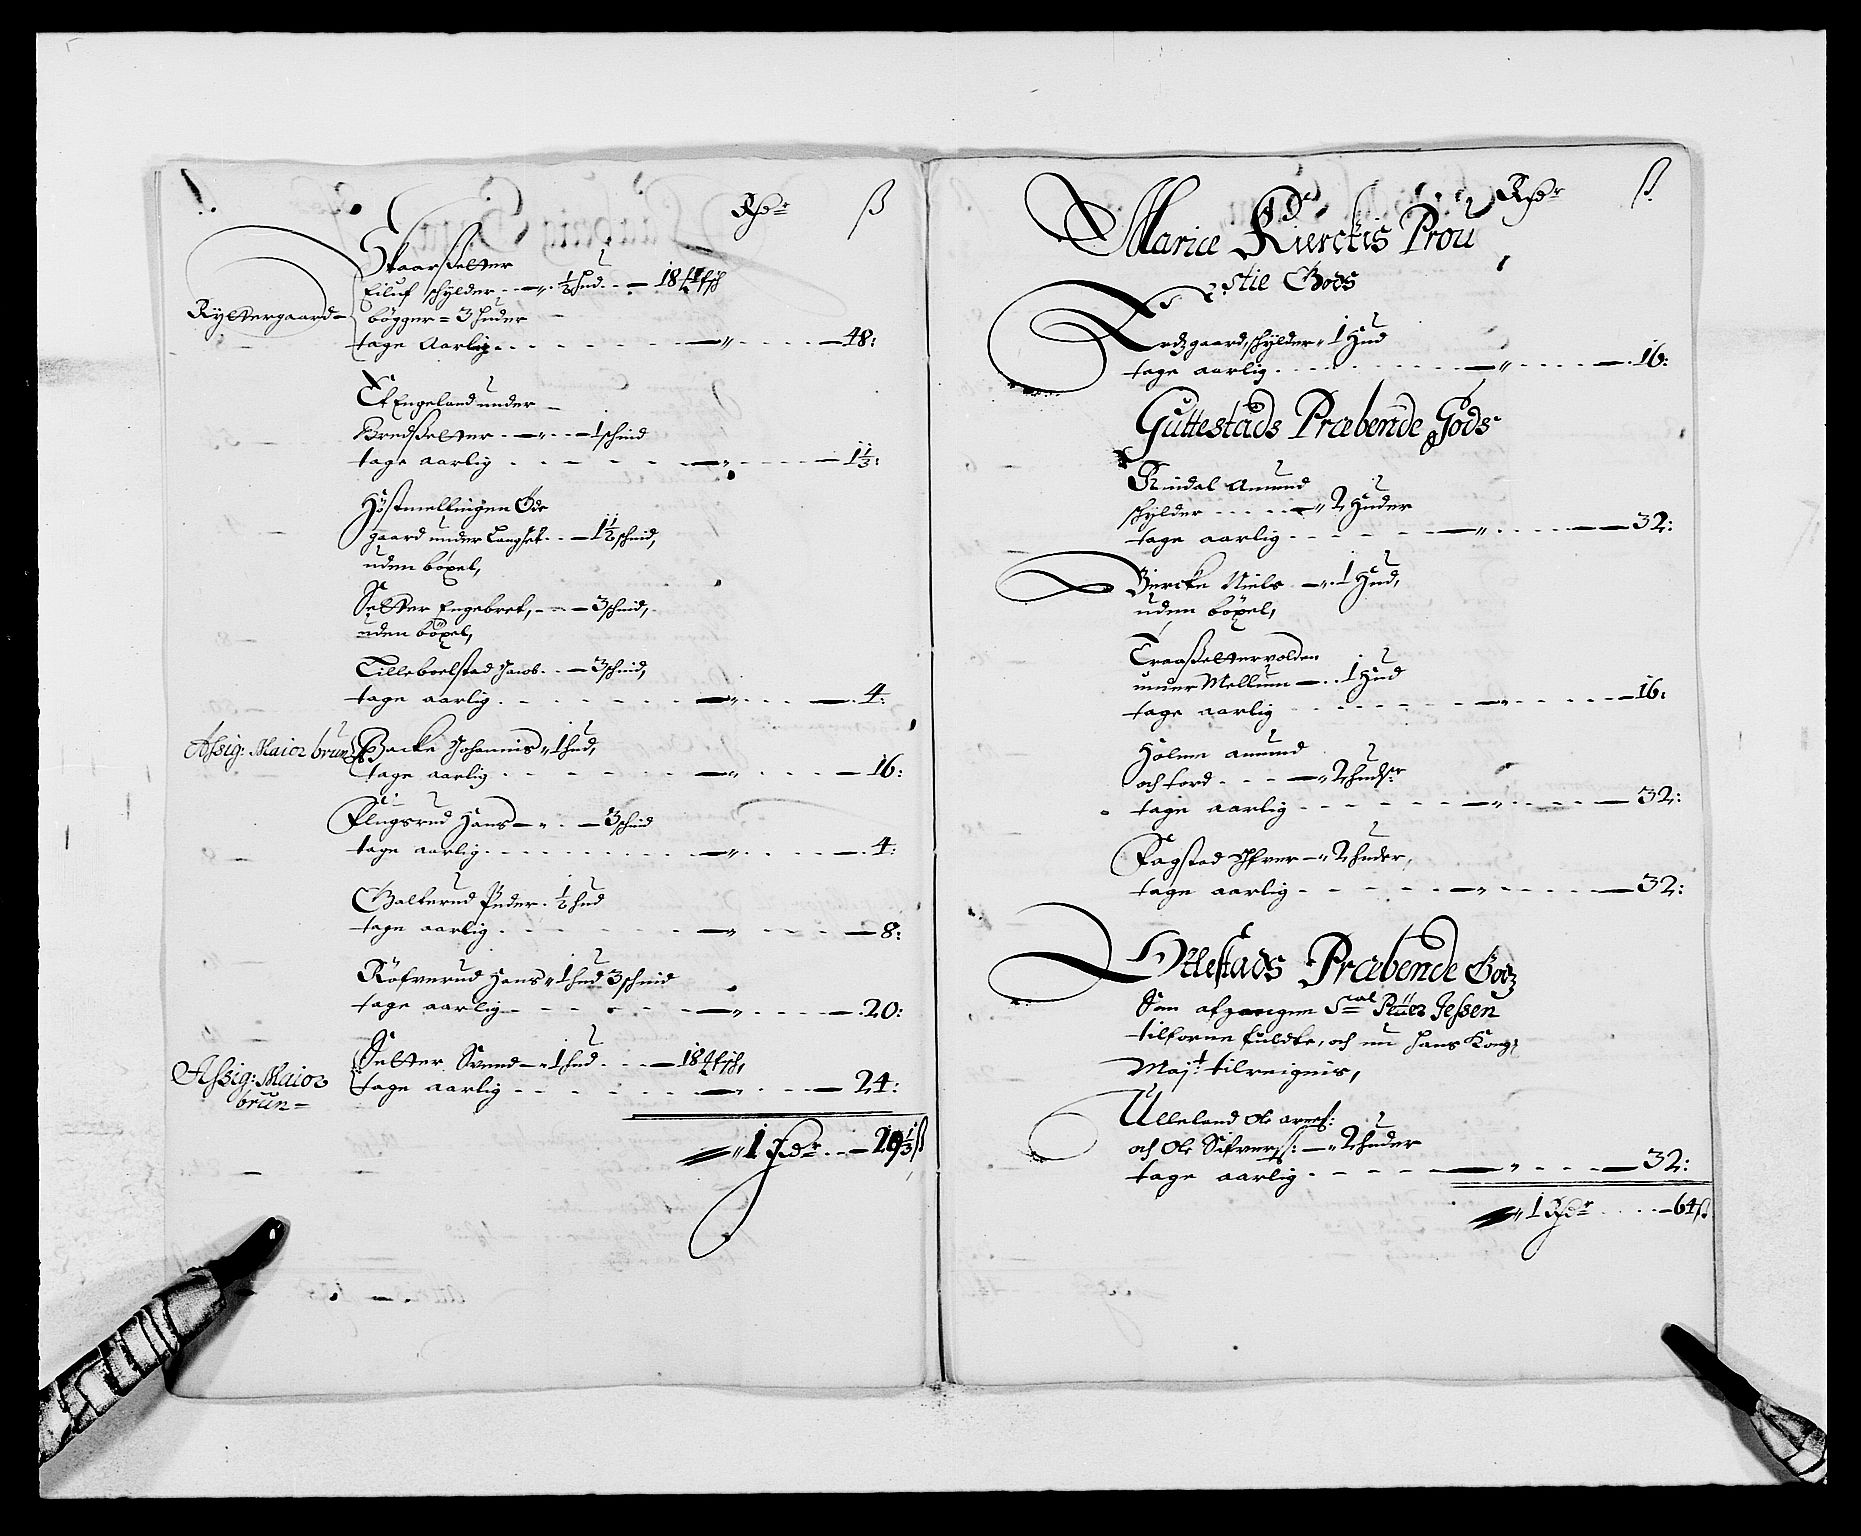 Rdr ß
Skaarsetter
Eiluf schylder - „ ½ hud - 18 ¼ fsch
Ryttergaard - bögger = 3 huder
tage Aarlig - „ - 48:
Et Engeland under
Bredsetter - „ - 1 schind
tage aarlig - „ - 1⅓:
Höstmellingen Öde
gaard under Langset - 1½ schind,
uden böxel,
Setter Engebret, - 3 schind,
uden böxel,
Tilleboelstad Jacob - 3 schind,
tage aarlig - „ - 4:
Assig: Maior brun Backe Johannis „ 1 hud,
tage aarlig - „ - 16:
Flugsrud Hans - „ - 3 schind
tage aarlig - „ - 4:
Galterud Peder - ½ hud
tage aarlig - „ - 8:
Röfverud Hans „ 1 hud 3 schind
tage aarlig - „ - 20:
Assig: Maior Setter Svend - „ 1 hud - 18 ¼ fsch,
brun = tage aarlig - „ - 24:
„ 1 Rdr - 29⅓ ß
Rdr ß
Mariæ Kierckis Prou
stie Gods
gaard, schylder „ 1 Hud
tage aarlig - „ - 16:
Guttestads Præbende Gods
Rindal Amund
schylder - „ 2 Huder
tage aarlig - „ - 32:
Biercke Niels - „ 1 Hud,
uden böxel,
Traasettervolden
under Mellum - 1 Hud
tage aarlig - „ - 16:
Holme Amund
och Tord - „ 2 hudr
tage aarlig - „ - 32:
Fagstad Ifver - „ 2 huder,
tage aarlig - „ - 32:
Ottestads Præbende Godz
Som afgangen Sal Peder Jessen
tilforne fuldte, och nu Hans Kong:
Majt tilreignis,
Ulleland Ole arnes:
och Ole Sifvers: - „ 2 huder
tage aarlig - „ - 32:
„ 1 Rdr - 64 ß